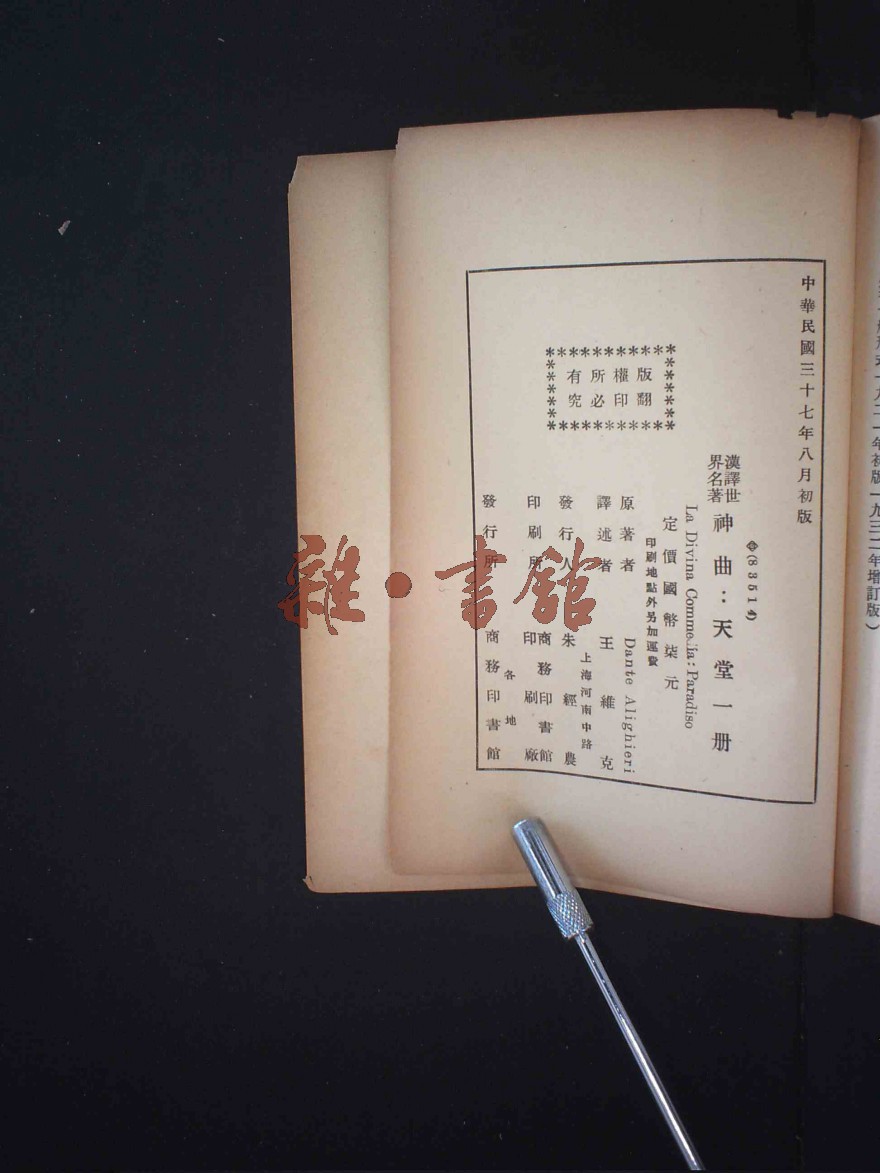 中華民國三十七年八月初版
(83514)
漢譯世界名著
神曲：天堂一册
La Divina Commedia: Paradiso
定價國幣柒元
印刷地點外另加運費
版權所有
翻印必究
原著者 Dante Alighieri
譯述者 王維克
上海河南中路
發行人 朱經農
印刷所 商務印書館印刷廠
各地
發行所 商務印書館
年初版一九三二年增訂版）
雜·書館